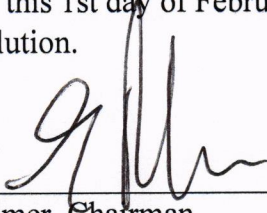 this 1st day of Febru
lution.
mer, Chairman